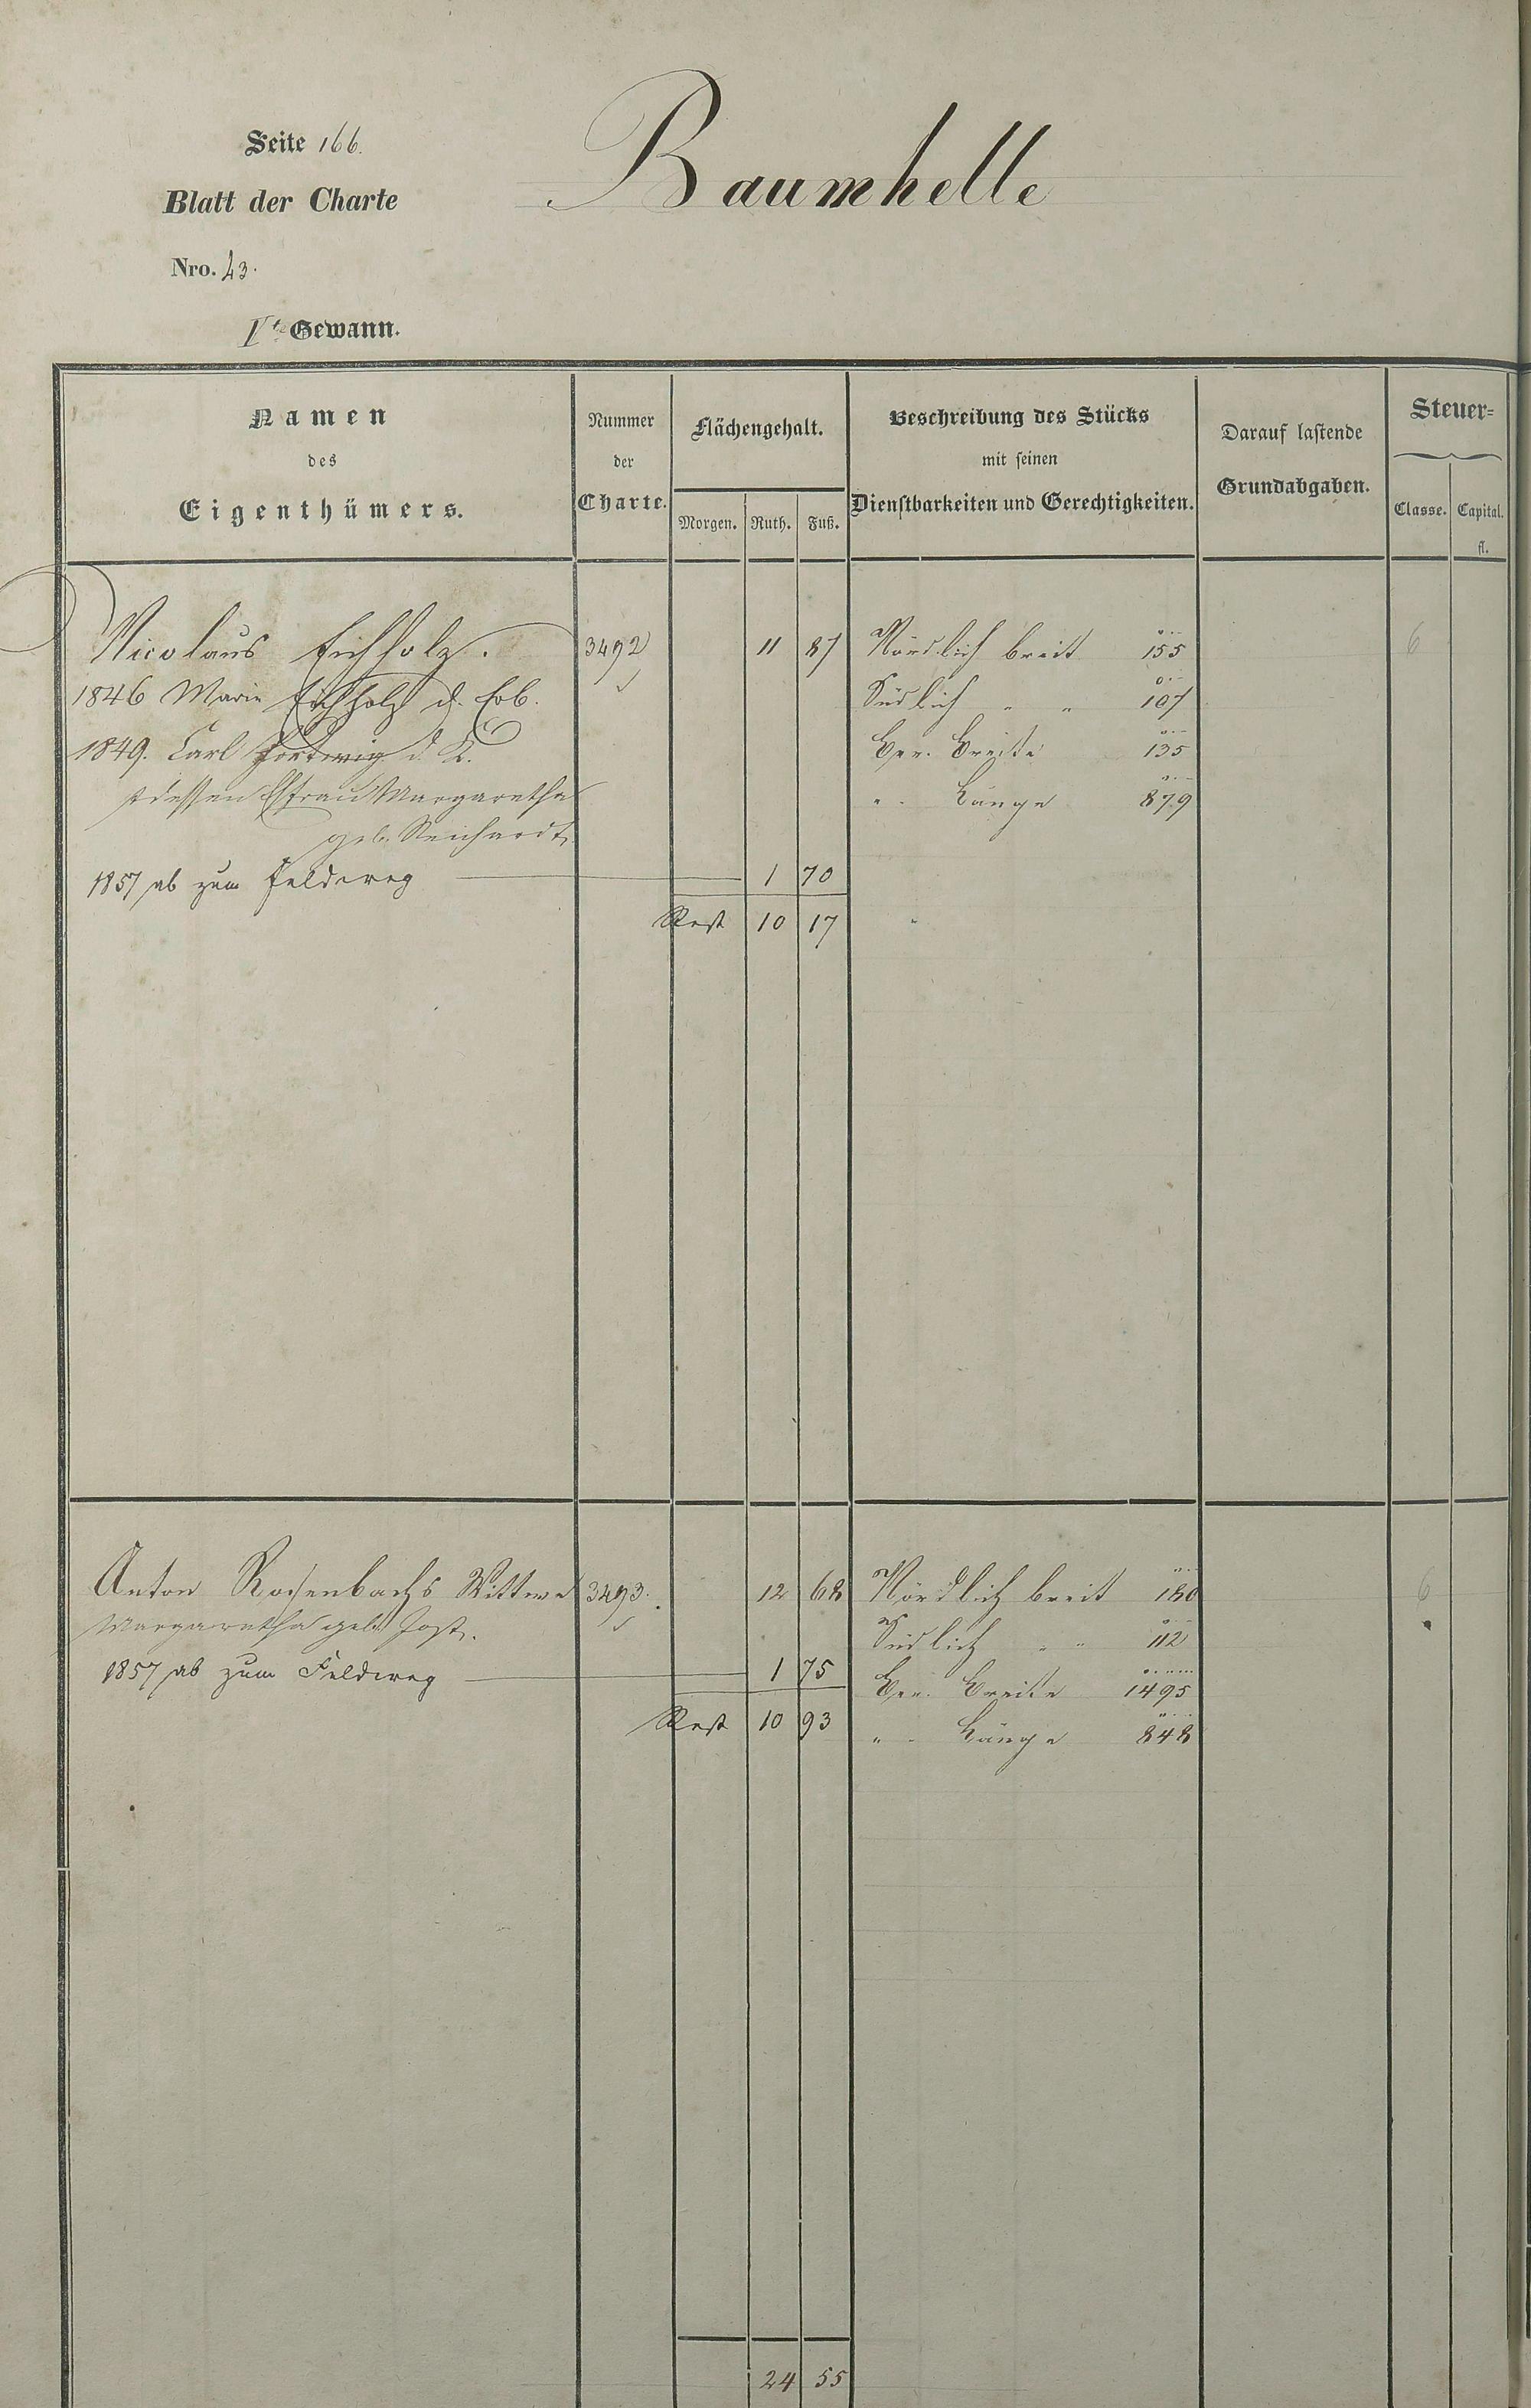 Seite 166.
Baumhelle
Blatt der Charte
Nro. 43.
Ite Gewann.
Namen
des
Eigenthümers.
Nummer
der
Charte.
Flächengehalt.
Morgen. Ruth. Fuß.
Beschreibung des Stücks
mit seinen
Dienstbarkeiten und Gerechtigkeiten.
Darauf lastende
Grundabgaben.
Steuer=
Classe. Capital.
fl.
Nicolaus Eichholz. 3492 11 87 Nördlich breit 155 6
1846 Marie Eichholz d. Erb. Südlich " " 107
1849. Carl d. K. Ger. Breite 135
dessen Ehfrau Margaretha " Länge 879
geb. Reichardt
1857 ab zum Feldweg 1 70
Rest 10 17
Anton Rosenbachs Wittwe 3493. 12 68 Nördlich breit 180 6
Margaretha geb. Jost. Südlich " " 112
1857 ab zum Feldweg 1 75 Ger. Breite 1495
Rest 10 93 " Länge 848
24 55